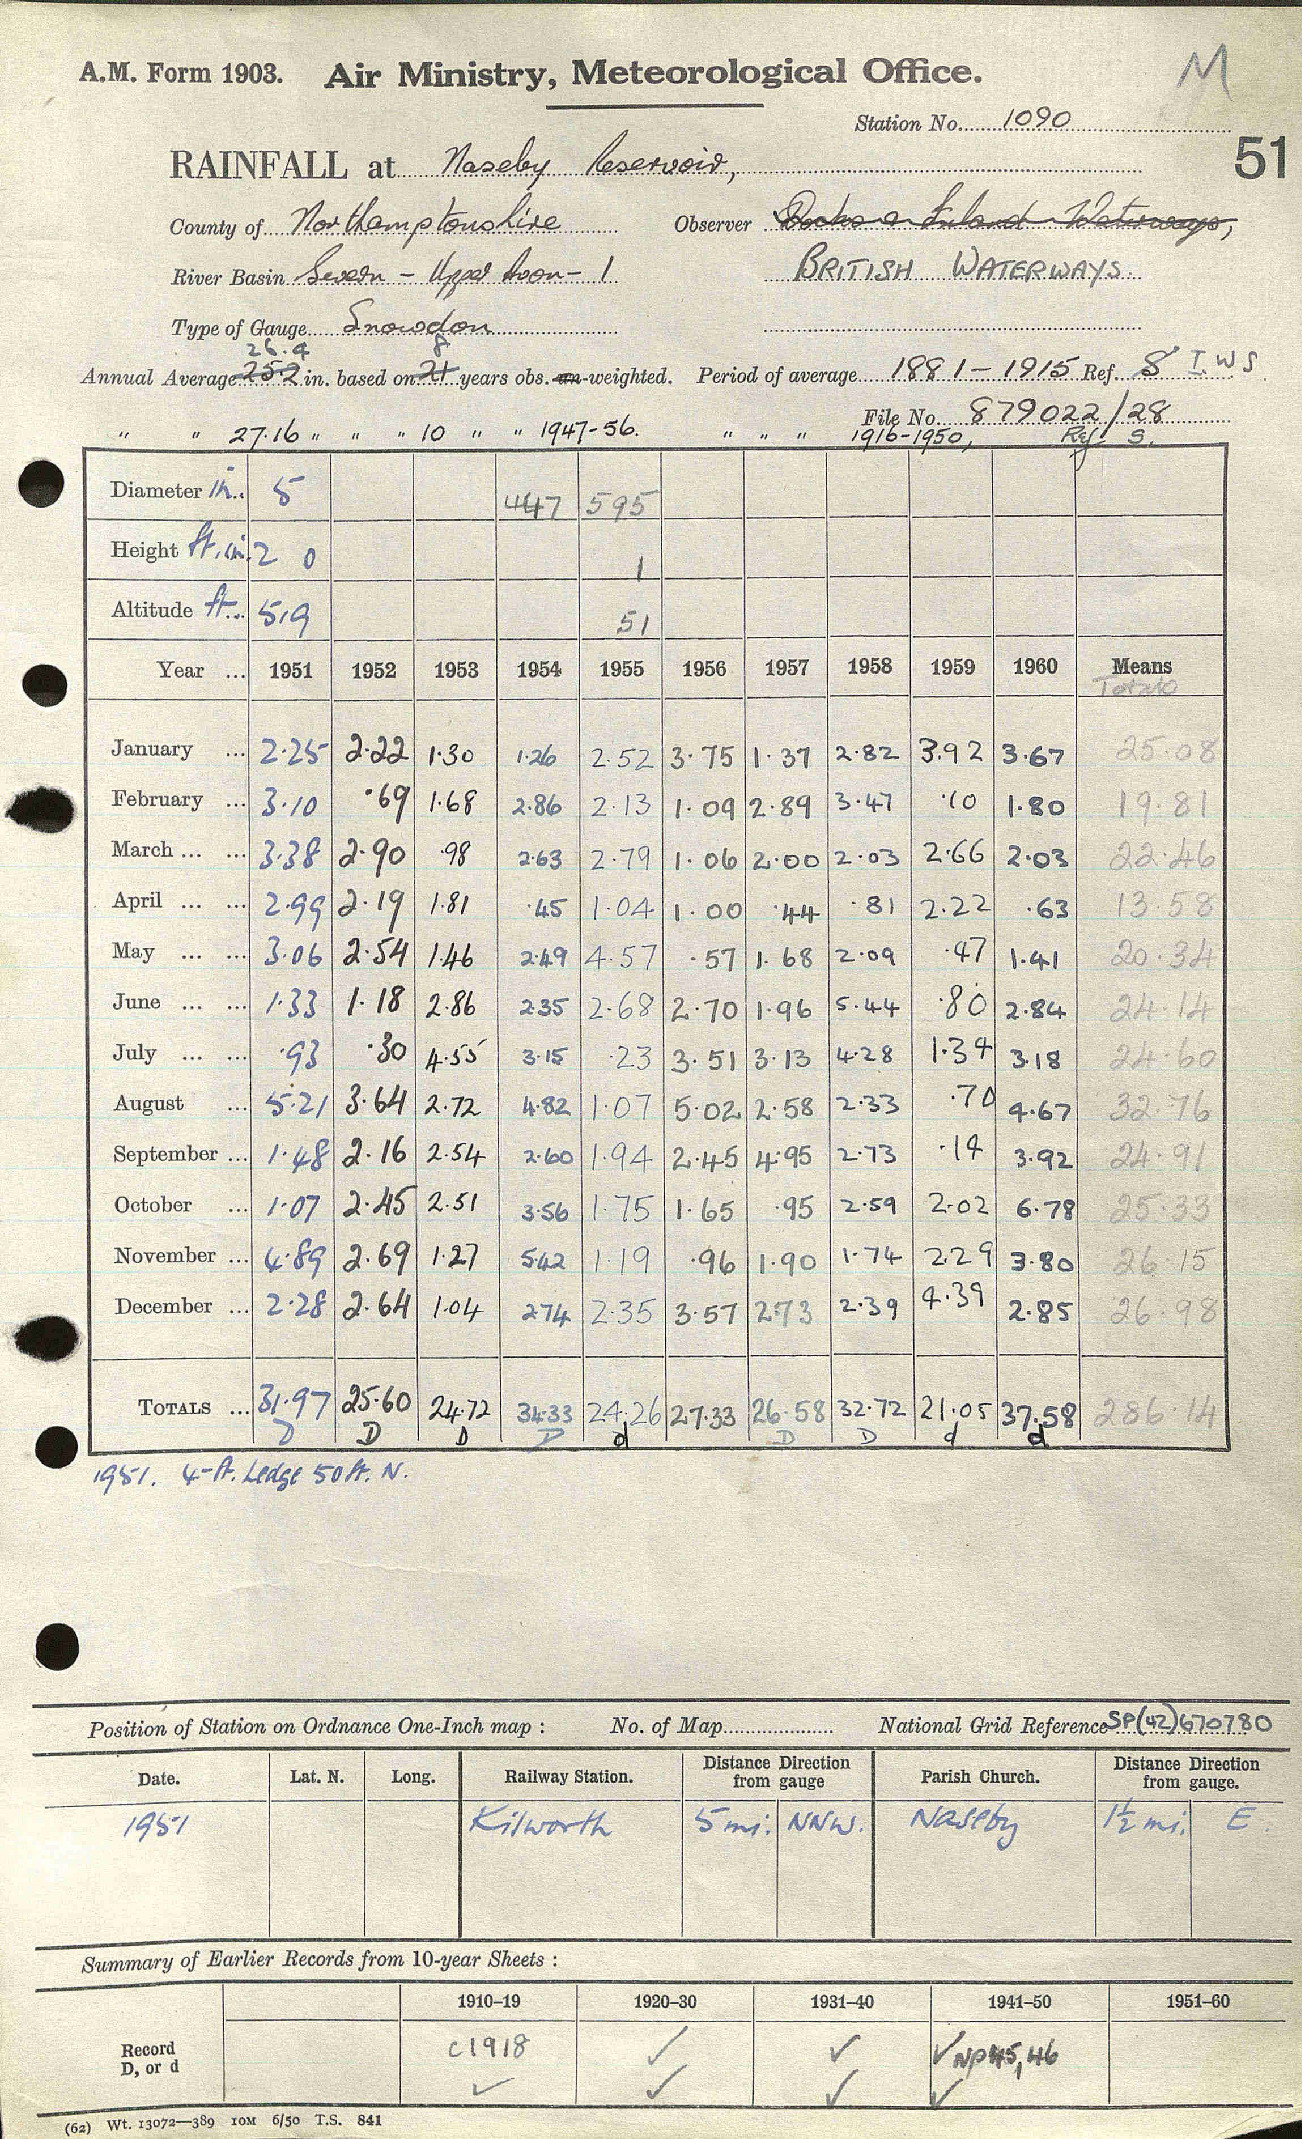 M
A.M. Form 1903. Air Ministry, Meteorological Office.
Station No. 1090
51
RAINFALL at Naseby Reservoir,
County of Northamptonshire Observer Docks & Inland Waterways,
River Basin Severn – Upper Avon – 1 BRITISH WATERWAYS.
Type of Gauge Snowdon
26.4 8
Annual Average 25.2 in. based on 21 years obs. un-weighted. Period of average 1881–1915 Ref. S I.W S
File No. 879022/28
" " 27.16 " " " 10 " " 1947-56. " " " 1916-1950, Ref. S.
Diameter in. 5 447 595
Height ft. in. 2 0 1
Altitude ft. 519 51
Year ... 1951 1952 1953 1954 1955 1956 1957 1958 1959 1960 Means
Totals
January ... 2.25 2.22 1.30 1.26 2.52 3.75 1.37 2.82 3.92 3.67 25.08
February ... 3.10 .69 1.68 2.86 2.13 1.09 2.89 3.47 .10 1.80 19.81
March ... ... 3.38 2.90 .98 2.63 2.79 1.06 2.00 2.03 2.66 2.03 22.46
April ... ... 2.99 2.19 1.81 .45 1.04 1.00 .44 .81 2.22 .63 13.58
May ... ... 3.06 2.54 1.46 2.49 4.57 .57 1.68 2.09 .47 1.41 20.34
June ... ... 1.33 1.18 2.86 2.35 2.68 2.70 1.96 5.44 .80 2.84 24.14
July ... ... .93 .30 4.55 3.15 .23 3.51 3.13 4.28 1.34 3.18 24.60
August ... 5.21 3.64 2.72 4.82 1.07 5.02 2.58 2.33 .70 4.67 32.76
September ... 1.48 2.16 2.54 2.60 1.94 2.45 4.95 2.73 .14 3.92 24.91
October ... 1.07 2.45 2.51 3.56 1.75 1.65 .95 2.59 2.02 6.78 25.33
November ... 4.89 2.69 1.27 5.42 1.19 .96 1.90 1.74 2.29 3.80 26.15
December ... 2.28 2.64 1.04 2.74 2.35 3.57 2.73 2.39 4.39 2.85 26.98
TOTALS ... 31.97 25.60 24.72 34.33 24.26 27.33 26.58 32.72 21.05 37.58 286.14
D D D D d D D d d
1951. 4-ft. Ledge 50 ft. N.
Position of Station on Ordnance One-Inch map : No. of Map National Grid Reference SP(42)670780
Date. Lat. N. Long. Railway Station. Distance from gauge Direction Parish Church. Distance from gauge. Direction
1951 Kilworth 5 mi. NNW. Naseby 1½ mi. E.
Summary of Earlier Records from 10-year Sheets :
1910–19 1920–30 1931–40 1941–50 1951–60
Record c1918 ✓ ✓ ✓ NP 45, 46
D, or d ✓ ✓ ✓ ✓
(62) Wt. 13072—389 10M 6/50 T.S. 841